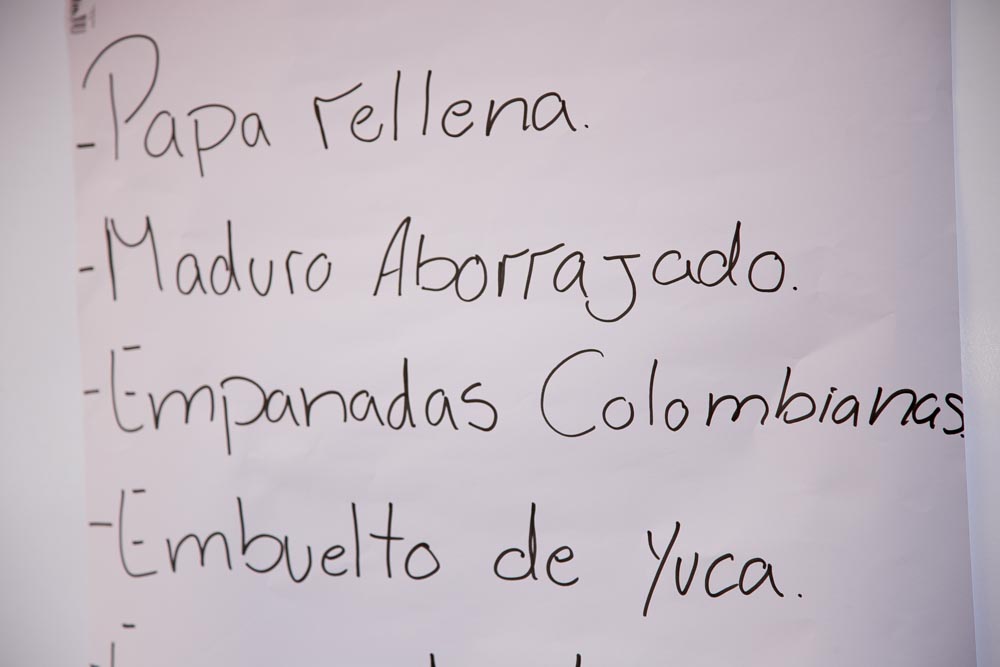 - Papa rellena.
- Maduro Aborrajado.
- Empanadas Colombianas.
- Embuelto de Yuca.